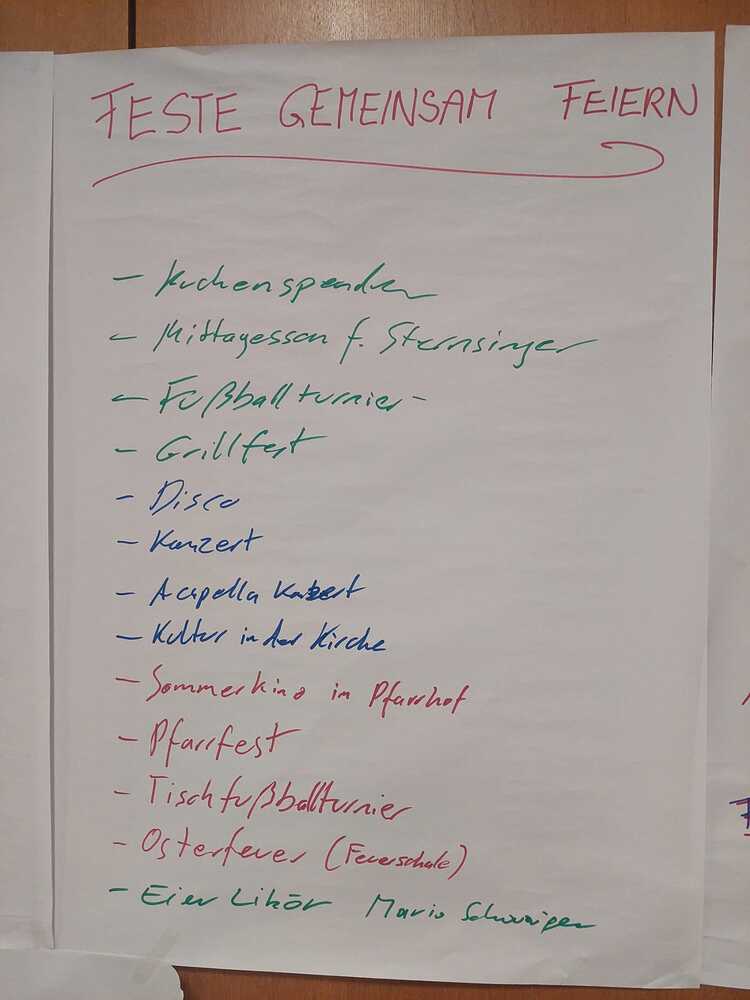 FESTE GEMEINSAM FEIERN
- Kuchenspenden
- Mittagessen f. Sternsinger
- Fußballturnier -
- Grillfest
- Disco
- Konzert
- Acapella Konzert
- Kultur in der Kirche
- Sommerkino im Pfarrhof
- Pfarrfest
- Tischfußballturnier
- Osterfeuer (Feuerschale)
- Eier Likör Mario